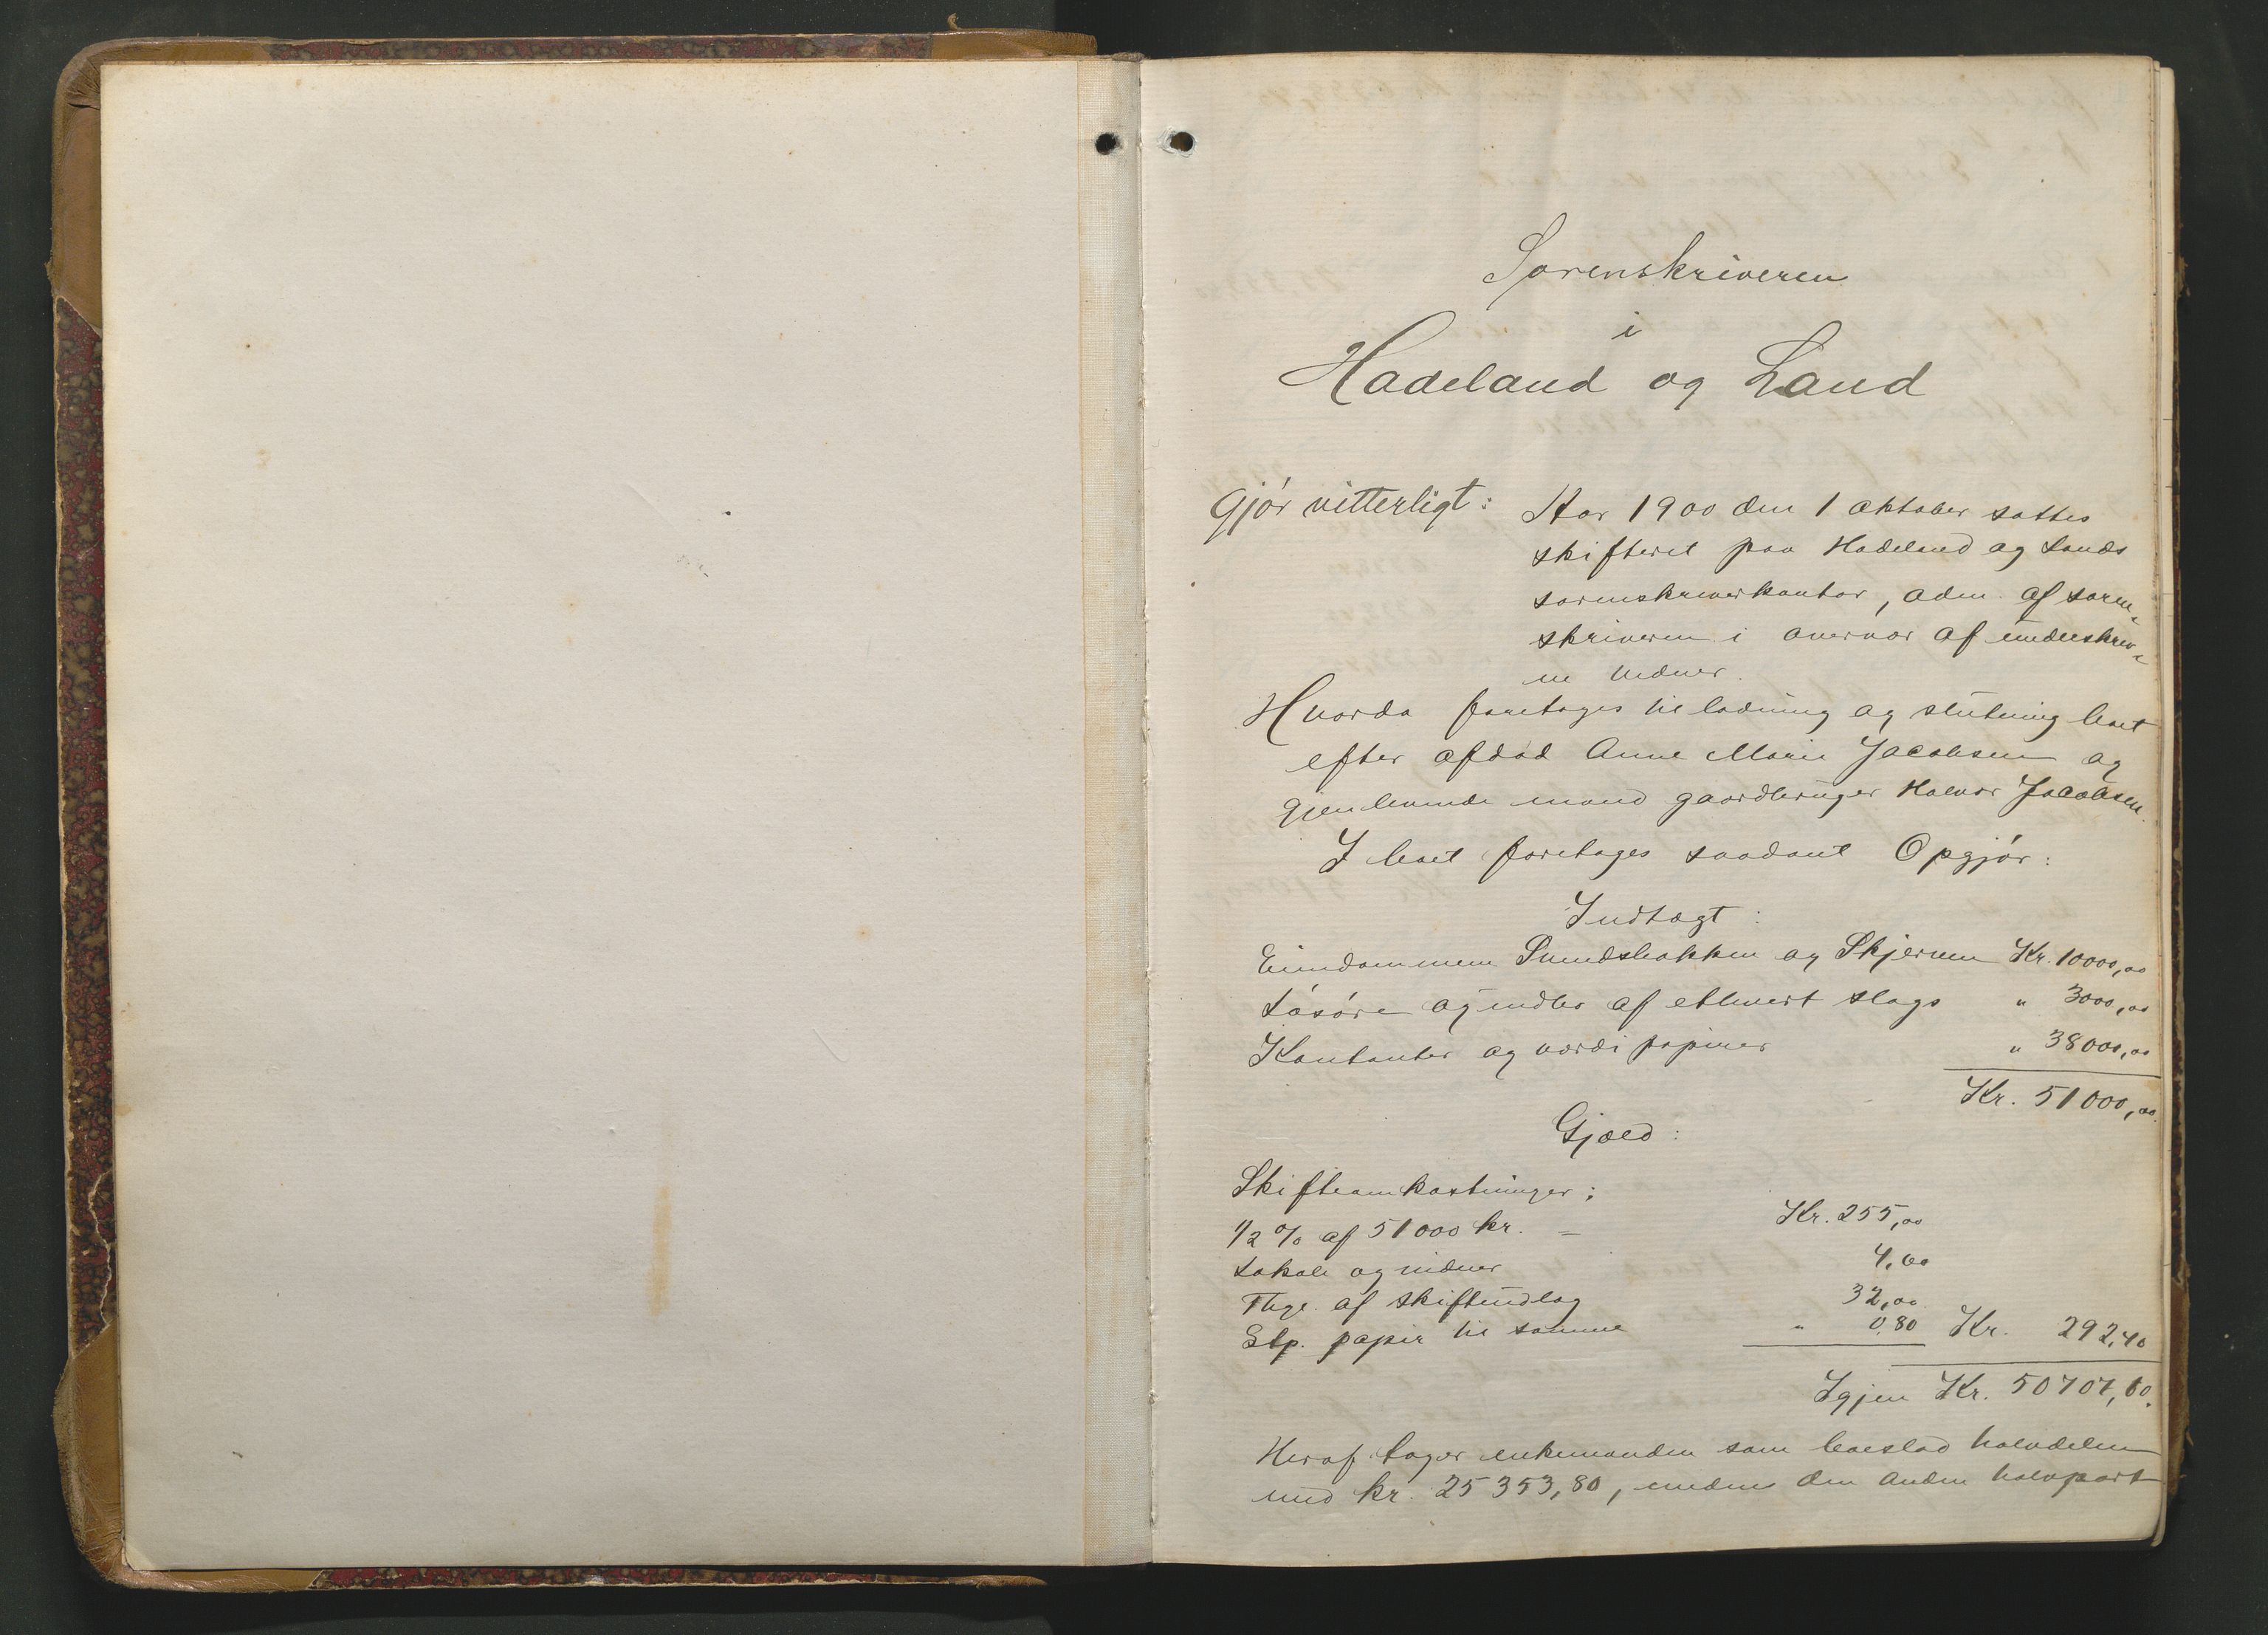 Sorenskriveren
i
Hadeland og Land
Gjör vitterligt: Aar 1900 den 1 oktober sattes
skifteret paa Hadeland og Lands
sorenskriverkontor, adm. af soren-
skriveren i overvær af underskrev-
ne vidner.
Hvorda foretoges til lodning og slutning boet
efter afdød Anne Marie Jacobsen og
gjenlevende mand gaardbruger Halvor Jacobsen.
I boet foretoges saadant Opgjör:
Indtægt:
Eiendommen Sundsbakken og Skjerven Kr. 10000,00
Lösöre og indbo af ethvert slags " 3000,00
Kontanter og værdipapirer " 38000,00
Kr. 51000,00
Gjæld:
Skifteomkostninger:
1/2 % af 51000 kr. = Kr. 255,00
Lokale og vidner 4,00
Thgl. af skifteudlæg 32,00
Stp. papir til samme " 0,80 Kr. 292,40
Igjen Kr. 50707,60.
Heraf tager enkemanden som boeslod halvdelen
med kr. 25353,80, medens den anden halvpart